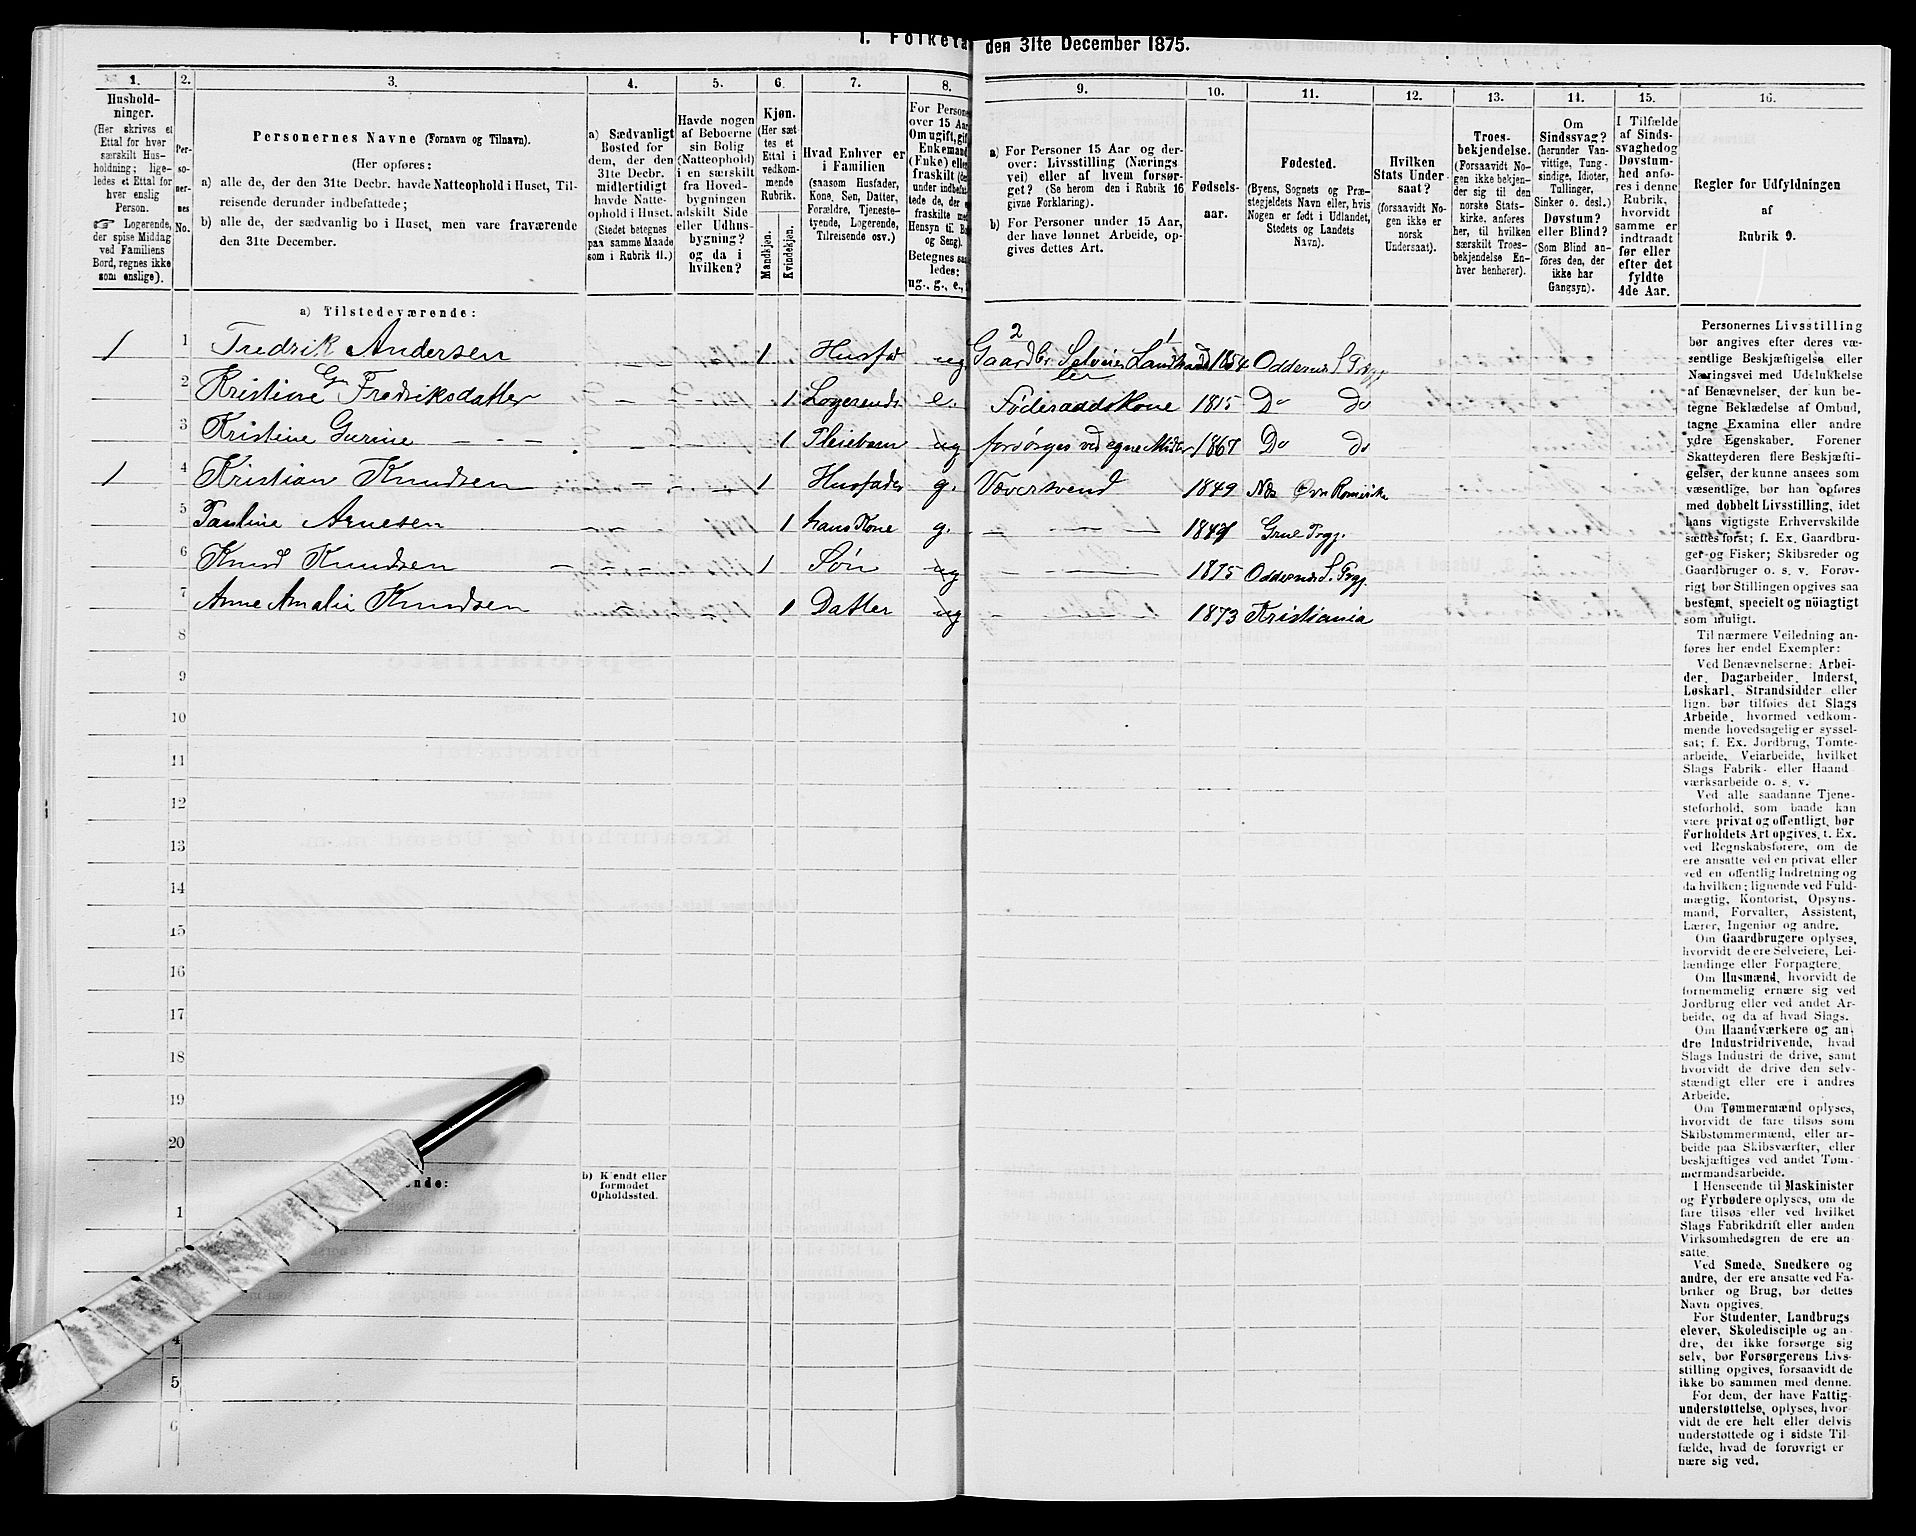 1. Folketæ den 31te December 1875.
1. 2. 3. 4. 5. 6. 7. 8. 9. 10. 11. 12. 13. 14. 15. 16.
Hushold-
ninger.
(Her skrives et
Ettal for hver
særskilt Hus-
holdning; lige-
ledes et Ettal for
hver enslig
Person.
☞ Logerende,
der spise Middag
ved Familiens
Bord, regnes ikke
som enslige).
Per-
so-
ner-
nes
No.
Personernes Navne (Fornavn og Tilnavn).
(Her opføres:
a) alle de, der den 31te Decbr. havde Natteophold i Huset, Til-
reisende derunder indbefattede;
b) alle de, der sædvanlig bo i Huset, men vare fraværende
den 31te December.
a) Sædvanligt
Bosted for
dem, der den
31te Decbr.
midlertidigt
havde Natte-
ophold i Huset.
(Stedet betegnes
paa samme Maade
som i Rubrik 11.)
Havde nogen
af Beboerne
sin Bolig
(Natteophold)
i en særskilt
fra Hoved-
bygningen
adskilt Side
eller Udhus-
bygning?
og da i
hvilken?
Kjøn.
(Her sæt
tes et
Ettal i
vedkom-
mende
Rubrik.
Mandskjøn.
Kvindekjøn.
Hvad Enhver er
i Familien
(saasom Husfader,
Kone, Søn, Datter,
Forældre, Tjeneste-
tyende, Logerende,
Tilreisende osv.)
For Persone
over 15 Aar
Om ugift, gift
Enkemand
(Enke) eller
fraskilt (der
under indbefat
tede de, der
fraskilte med
Hensyn til Bo
og Seng).
Betegnes saa-
ledes:
ug., g., e.,
a) For Personer 15 Aar og der-
over: Livsstilling (Nærings
vei) eller af hvem forsør-
get? (Se herom den i Rubrik 16
givne Forklaring).
b) For Personer under 15 Aar,
der have lønnet Arbeide, op-
gives dettes Art.
Fødsels-
aar.
Fødested.
(Byens, Sognets og Præ-
stegjeldets Navn eller, hvis
Nogen er født i Udlandet,
Stedets og Landets
Navn).
Hvilken
Stats Under
saat?
(forsaavidt No-
gen ikke er
norsk
Undersaat).
Troes-
bekjendelse.
(Forsaavidt No-
gen ikke bekjen-
der sig til den
norske Stats-
kirke, anføres
her, til hvilken
særskilt Troes-
bekjendelse En-
hver henhører).
Om
Sindssvag?
(herunder Van-
vittige, Tung-
sindige, Idioter,
Tullinger,
Sinker o. desl.)
Døvstum?
eller Blind?
(Som Blind an-
føres den, der
ikke har
Gangsyn).
I Tilfælde
af Sinds-
svaghed og
Døvstum-
hed anfø-
res i denne
Rubrik,
hvorvidt
samme er
indtraadt
før eller
efter det
fyldte
4de Aar.
Regler for Udfyldningen
af
Rubrik 9.
a) Tilstedeværende:
1 1 Fredrik Andersen 1 Husfad ug Gaardbr Selveier 1854 Oddernes S Prgj
2 Kristine Fredriksdatter - - 1 Logerende e. Føderaadskone 1815 Do do
3 Kristine Gurine - - - - - 1 Pleiebarn ug forsørges ved egne Midler 1867 Do do
1 4 Kristian Knudsen - - - 1 Husfader g. Væversvend 1849 Næs Øvr Romerike
5 Pauline Arnesen - - 1 hans Kone g. - - - Grue Prgj.
6 Knud Knudsen - - - 1 Søn ug - - 1875 Oddernes S. Prgj.
7 Anne Amalie Knudsen - - 1 Datter ug - - 1873 Kristiania
8
9
10
11
12
13
14
15
16
17
18
19
20
ende:
b) Kjendt eller
formodet
Opholdssted.
1
4
5
6
Personernes Livsstilling
bør angives efter deres væ-
sentlige Beskjæftigelse eller
Næringsvei med Udelukkelse
af Benævnelser, der kun be-
tegne Beklædelse af Ombud,
tagne Examina eller andre
ydre Egenskaber. Forener
Skatteyderen flere Beskjæfti-
gelser, der kunne ansees som
væsentlige, bør han opføres
med dobbelt Livsstilling, idet
hans vigtigste Erhvervskilde
sættes først; f. Ex. Gaardbru-
ger og Fisker; Skibsreder og
Gaardbruger o. s. v. Forøv-
rigt bør Stillingen opgives saa
bestemt, specielt og nöiagtigt
som muligt.
Til nærmere Veiledning an-
føres her endel Exempler:
Ved Benævnelserne: Arbei-
der, Dagarbeider, Inderst,
Løskarl, Strandsidder eller
lign. bør tilføies det Slags
Arbeide, hvormed vedkom-
mende hovedsagelig er syssel-
sat; f. Ex. Jordbrug, Tomte-
arbeide, Veiarbeide, hvilket
Slags Fabrik- eller Haand
værksarbeide o. s. v.
Ved alle saadanne Tjene-
steforhold, som baade kan
være privat og offentligt, bør
Forholdets Art opgives, t. Ex.
ved Regnskabsførere, om de
ere ansatte ved en privat eller
ved en offentlig Indretning og
da hvilken; lignende ved Fuld-
mægtig, Kontorist, Opsyns-
mand, Forvalter, Assistent,
Lærer, Ingeniør og andre.
Om Gaardbrugere oplyses,
hvorvidt de ere Selveiere, Lei-
lændinge eller Forpagtere.
Om Husmænd, hvorvidt de
fornemmelig ernære sig ved
Jordbrug eller ved andet Ar-
beide, og da af hvad Slags.
Om Haandværkere og an-
dre Industridrivende, hvad
Slags Industri de drive, samt
hvorvidt de drive den selv-
stændigt eller ere i andres
Arbeide.
Om Tømmermænd oplyses,
hvorvidt de fare tilsøs som
Skibstømmermænd, eller ar-
beide paa Skibsværfter, eller
beskjæftiges ved andet Tøm-
mermandsarbeide.
I Henseende til Maskinister
og Fyrbødere oplyses, om de
fare tilsøs eller ved hvilket
Slags Fabrikdrift eller anden
Virksomhedsgren de ere an-
satte.
Ved Smede, Snedkere og
andre, der ere ansatte ved Fa-
briker og Brug, bør dettes
Navn opgives.
For Studenter, Landbrugs
elever, Skoledisciple og an-
dre, der ikke forsørge sig
selv, bør Forsørgerens Livs-
stilling opgives, forsaavidt de
ikke bo sammen med denne.
For dem, der have Fattig-
understøttelse, oplyses, hvor-
vidt de ere helt eller delvis
understøttede og i sidste Til-
fælde, hvad de forøvrigt er
nære sig ved.